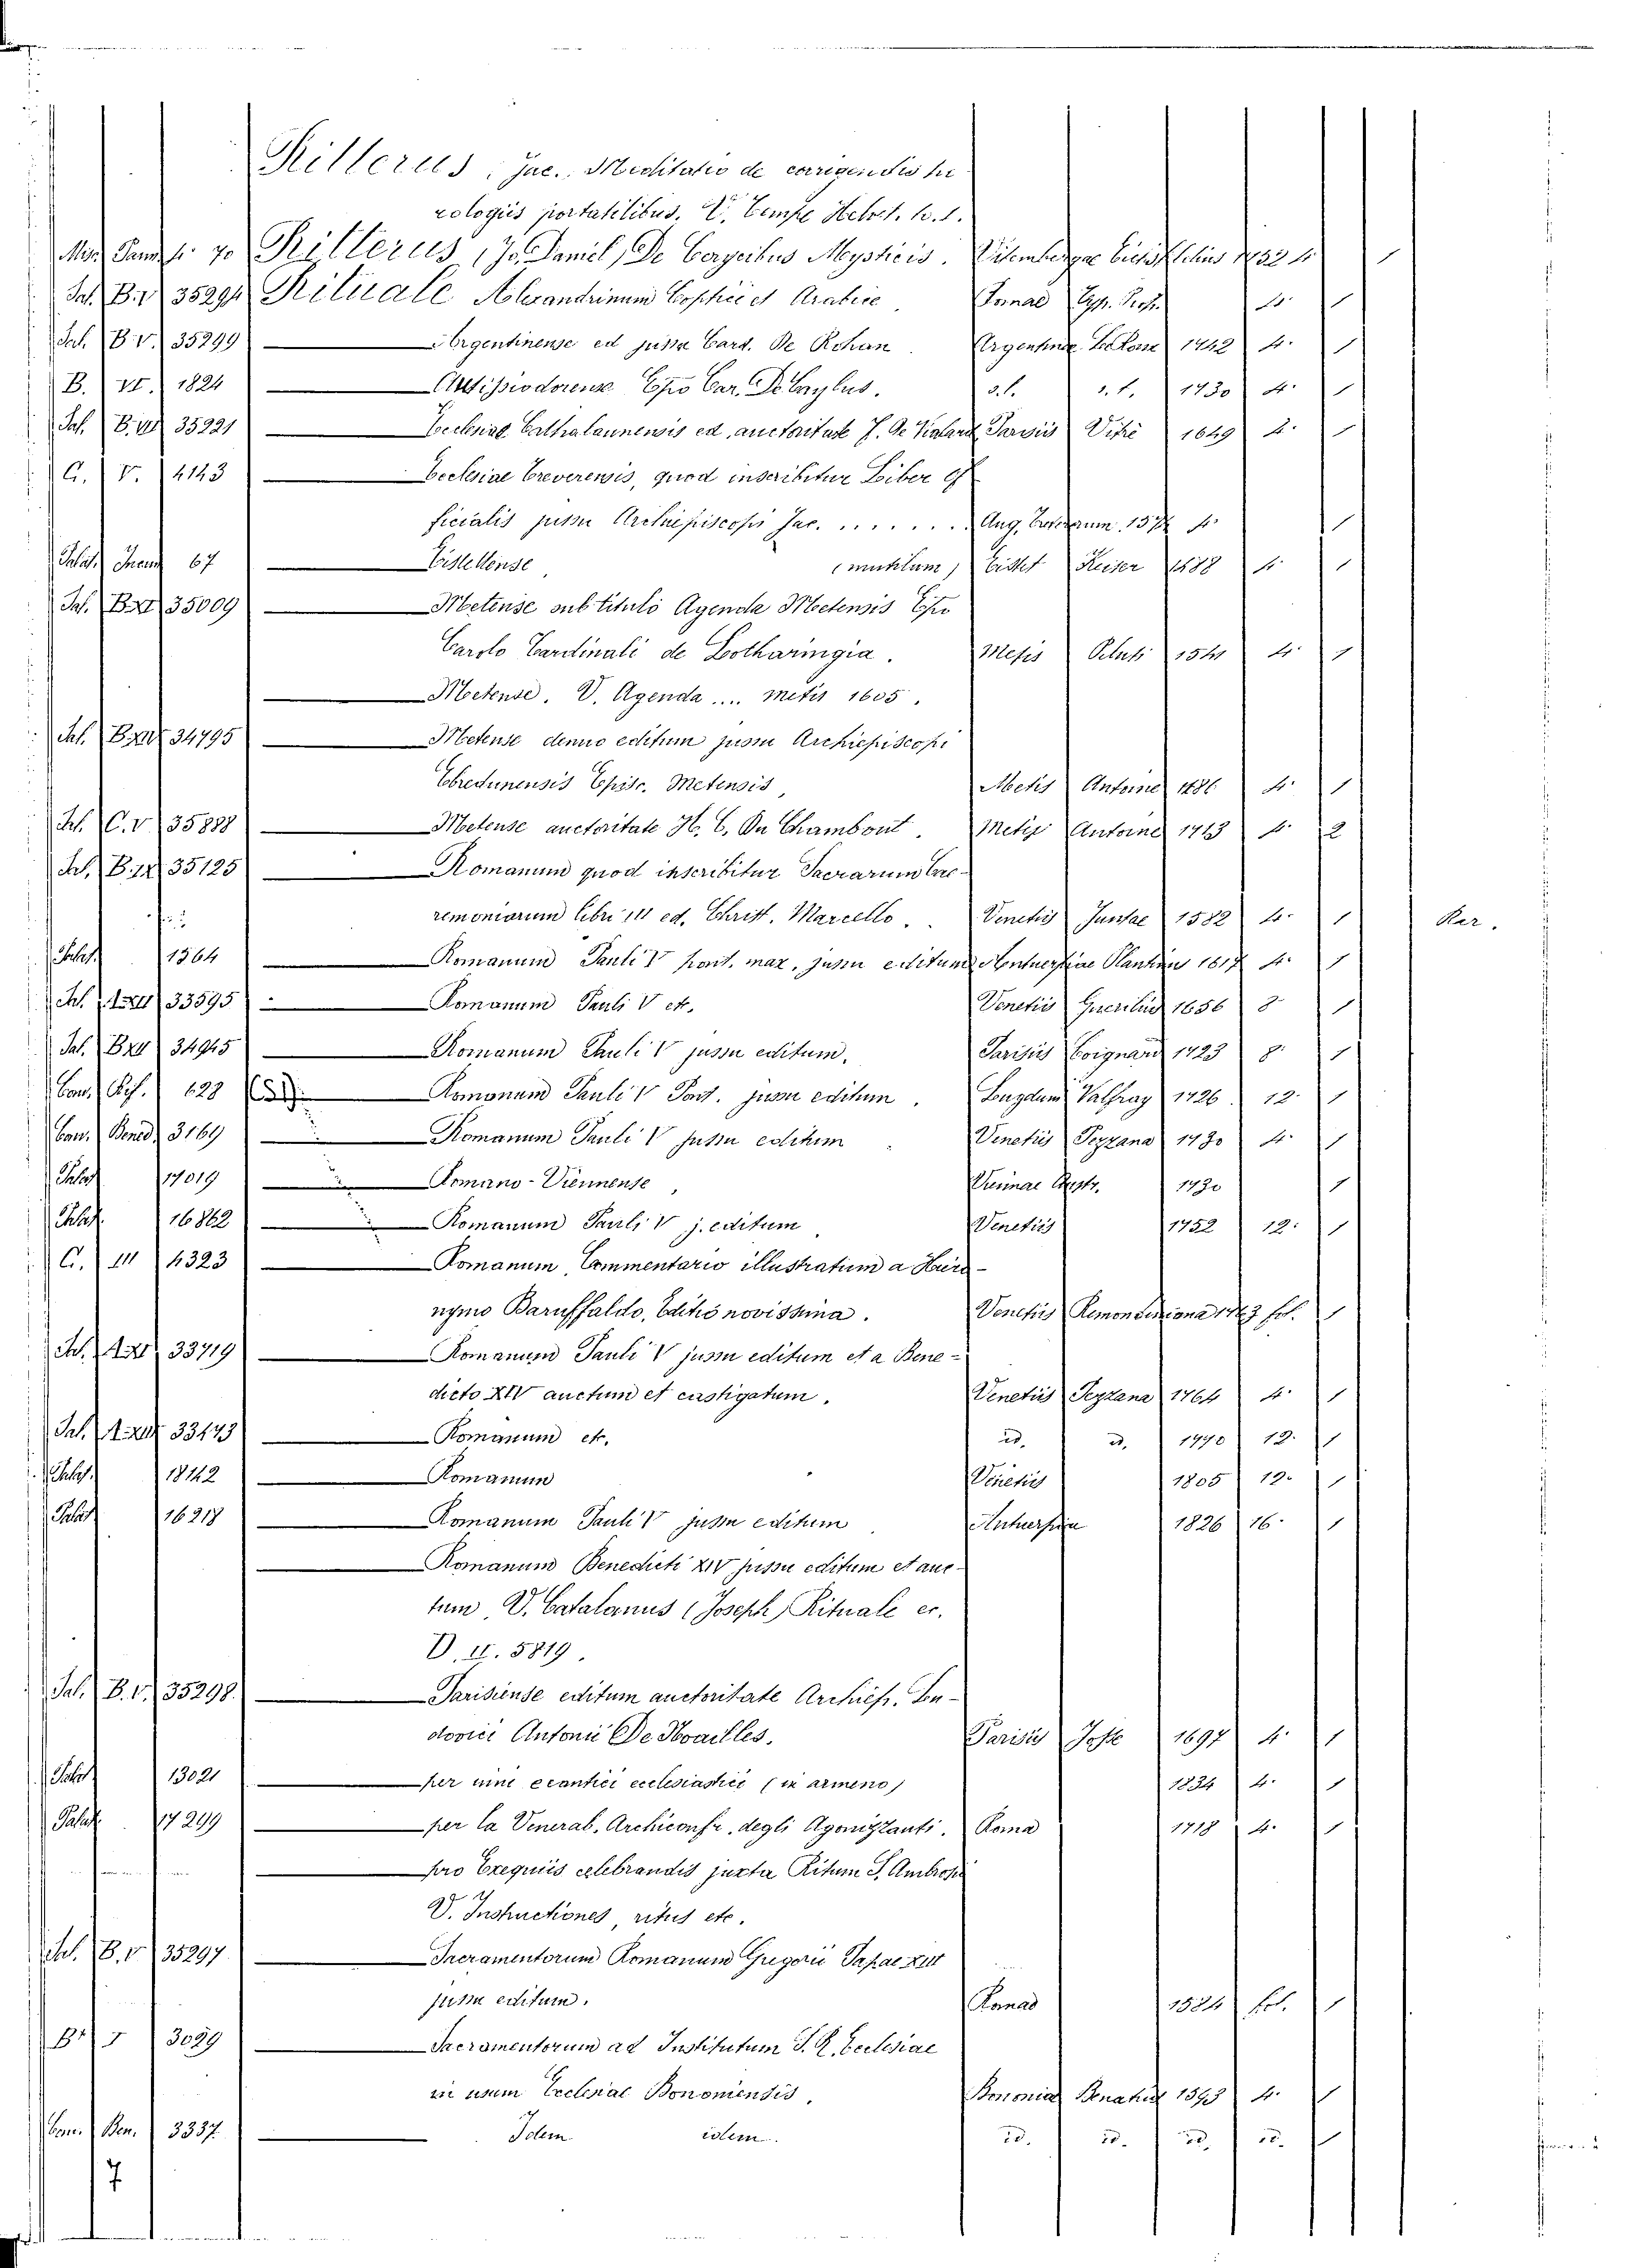 Ritterus, Jac. Meditatio de corrigendis ho
rologiis portatilibus. V. Tempe Helvet. to. 1.
Misc. f. 70 Ritterus, Jo. Daniel, De Mysticis. 4 1
Sal. B.V. 35294 Rituale Alexandrinum Cophice et Arabice Romae Typ. 4. 1
Sal. B.V. 35299 Argentinense ed. jussu Card. De Rohan. Argentinae 1742 4. 1
B. VI. 1824 Antissiodorense Epo Car. De Caylus. s.l. s.t. 1730 4. 1
Sal. 35221 Ecclesiae Cathalaunensis ed. auctoritate F. de Vialard Parisiis Vitré 1649 4. 1
C. V. 4143 Ecclesiae Treverensis, quod inscribitur Liber of
ficialis jussu Archiepiscopi Jac. . . . . . . Aug. Treverorum 4. 1
Palat. 67 Eistettense (mutilum) Eistet 1488 4. 1
Sal. 35009 Metense sub titulo Agenda Metensis Epo
Carolo Cardinali de Lotharingia. Metis 4. 1
Metense. V. Agenda .... Metis 1605.
Sal. 34795 Metense denuo editum jussu Archiepiscopi
Ebredunensis Episc. Metensis, Metis Antoine 1686 4. 1
Sal. C.V. 35888 Metense auctoritate H. C. Du Cambout. Metis Antoine 1713 4. 2
Sal. 35125 Romanum quod inscribitur Sacrarum Cae-
remoniarum libri III ed. Christ. Marcello. Venetiis Juntae 1582 4. 1 Rar.
Palat. 1564 Romanum Pauli V pont. max. jussu editum Antuerpiae Plantin 1617 4. 1
Sal. 33595 Romanum Pauli V etc. Venetiis 1656 8 1
Sal. 34945 Romanum Pauli V jussu editum. Parisiis Coignard 1723 8. 1
Can. 628 Romanum Pauli V Pont. jussu editum. Lugduni Valfray 1726 12. 1
Can. Bened. 3169 Romanum Pauli V jussu editum Venetiis Pezzana 1730 4. 1
Palat. 17019 Romano-Viennense, Viennae 1730 1
Palat. 16862 Romanum Pauli V j. editum Venetiis 1752 12. 1
C. III 4323 Romanum, Commentario illustratum a Hiero-
nymo Baruffaldo, Editio novissima. Venetiis Remondiniana 1763 fol. 1
Sal. 33719 Romanum Pauli V jussu editum et a Bene-
dicto XIV auctum et castigatum. Venetiis Pezzana 1764 4. 1
Sal. 33473 Romanum etc. id. id. 1770 12. 1
Palat. 18742 Romanum Venetiis 1805 12. 1
Palat. 16218 Romanum Pauli V jussu editum Antuerpiae 1826 16. 1
Romanum Benedicti XIV jussu editum et auc-
tum. V. Catalanus (Joseph) Rituale ec.
D. II. 5819.
Sal. B.V. 35298. Parisiense editum auctoritate Archiep. Lu-
dovici Antonii De Noailles. Parisiis Josse 1697 4. 1
Palat. 13021 per ecclesiastici (in armeno) 1834 4. 1
Palat. 17299 per la Venerab. Archiconfr. degli Agonizzanti. Roma 1718 4. 1
pro Exequiis celebrandis juxta Ritum S. Ambrosii
V. Instructiones, ritus etc.
Sal. B.V. 35297 Sacramentorum Romanum Gregorii Papae XIII
jussu editum. Romae 1584 fol. 1
3029 Sacramentorum ad Institutum S. R. Ecclesiae
in usum Ecclesiae Bononiensis. Bononiae Benatius 1593 4. 1
Can. Ben. 3337 Idem idem. id. id. id. id. 1
7